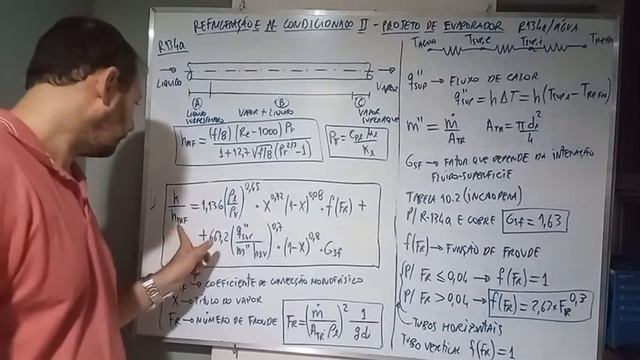 REFRIGERAÇÃO E AR CONDICIONADO II - PROJETO DE EVAPORADOR R134a/ÁGUA
R134a
LÍQUIDO
VAPOR
A B C
LÍQUIDO VAPOR + LÍQUIDO VAPOR
h_MF = (f/8)(Re-1000)Pr / 1+12,7√f/8(Pr^2/3-1)
Pr = Cpl μl / Kl
h/h_MF = 1,136(ρl/ρv)^0,45 · X^0,72(1-X)^0,08 · f(FR) +
+ 667,2(q"sup/m"hlv)^0,7 · (1-X)^0,8 · Gsf
COEFICIENTE DE CONVECÇÃO MONOFÁSICO
X → TÍTULO DO VAPOR
FR → NÚMERO DE FROUDE
FR = (ṁ/ATR ρl)^2 1/gdi
TÁGUA Tsup,e Tsup,i TREFRI
q"sup → FLUXO DE CALOR
q"sup = hΔT = h(Tsup,i - TREFRI)
m" = ṁ/ATR ATR = πdi²/4
Gsf → FATOR QUE DEPENDE DA INTERAÇÃO
FLUIDO-SUPERFÍCIE
TABELA 10.2 (INCROPERA)
P/ R-134a E COBRE Gsf = 1,63
f(FR) → FUNÇÃO DE FROUDE
P/ FR ≤ 0,04 → f(FR) = 1
P/ FR > 0,04 → f(FR) = 2,63 × FR^0,3
TUBOS HORIZONTAIS
TUBO VERTICAL f(FR) = 1